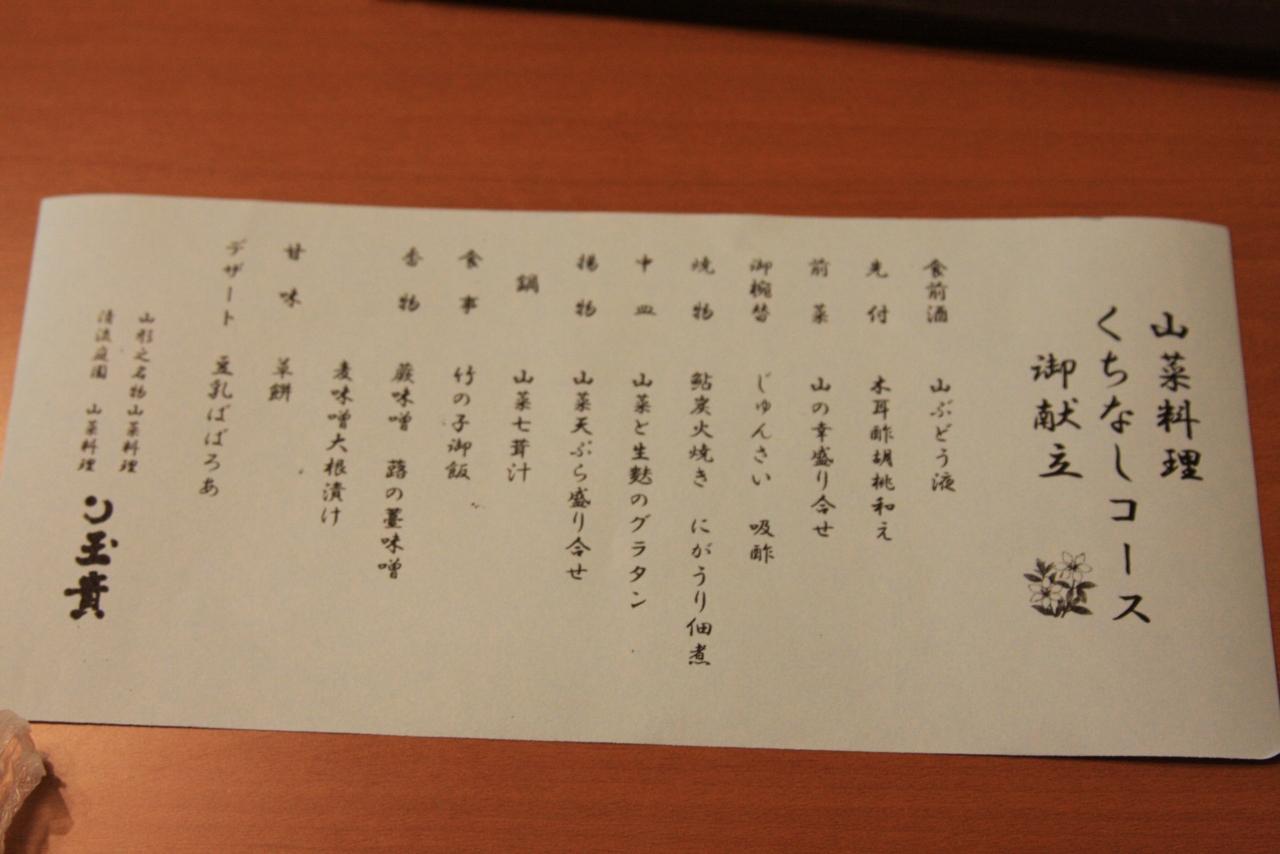 山菜料理
くちなしコース
御献立
食前酒 山ぶどう液
先付 木耳酢胡桃和え
前菜 山の幸盛り合せ
御椀替 じゅんさい 吸酢
焼物 鮎炭火焼き にがうり佃煮
中皿 山菜と生麩のグラタン
揚物 山菜天ぷら盛り合せ
鍋 山菜七茸汁
食事 竹の子御飯
香物 蕨味噌 蕗の薹味噌
麦味噌大根漬け
甘味 草餅
デザート 豆乳ばばろあ
山形之名物山菜料理
清流庭園 山菜料理
玉貴